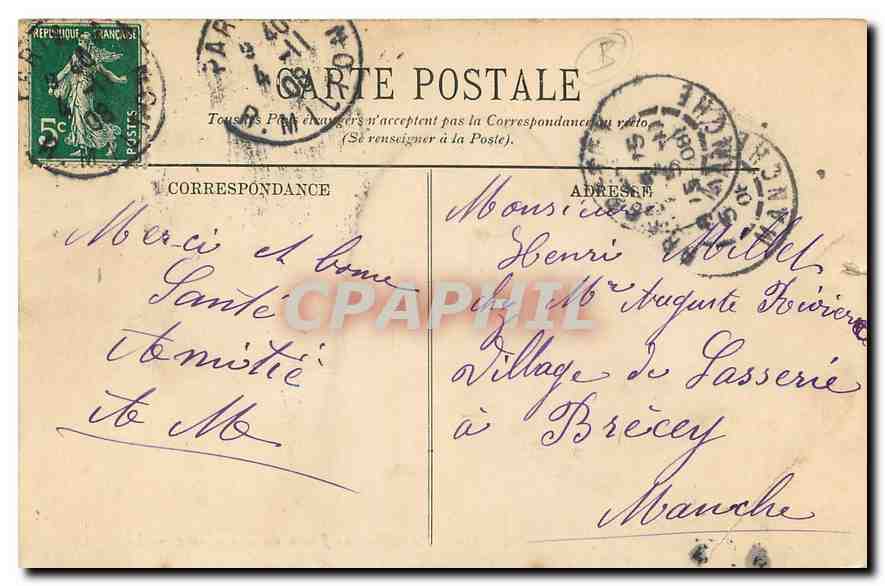 REPUBLIQUE FRANÇAISE
5c
POSTES
CARTE POSTALE
Tous les Pays étrangers n'acceptent pas la Correspondance au recto
(Se renseigner à la Poste).
CORRESPONDANCE
Merci et bonne
Santé
Amitié
A M
ADRESSE
Monsieur
Henri Millet
chez Mr Auguste Rivière
Village de Lasserie
à Brécey
Manche
CPAPHIL